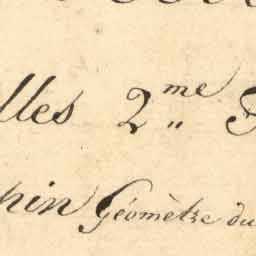 lles 2.me
pin Géomètre du